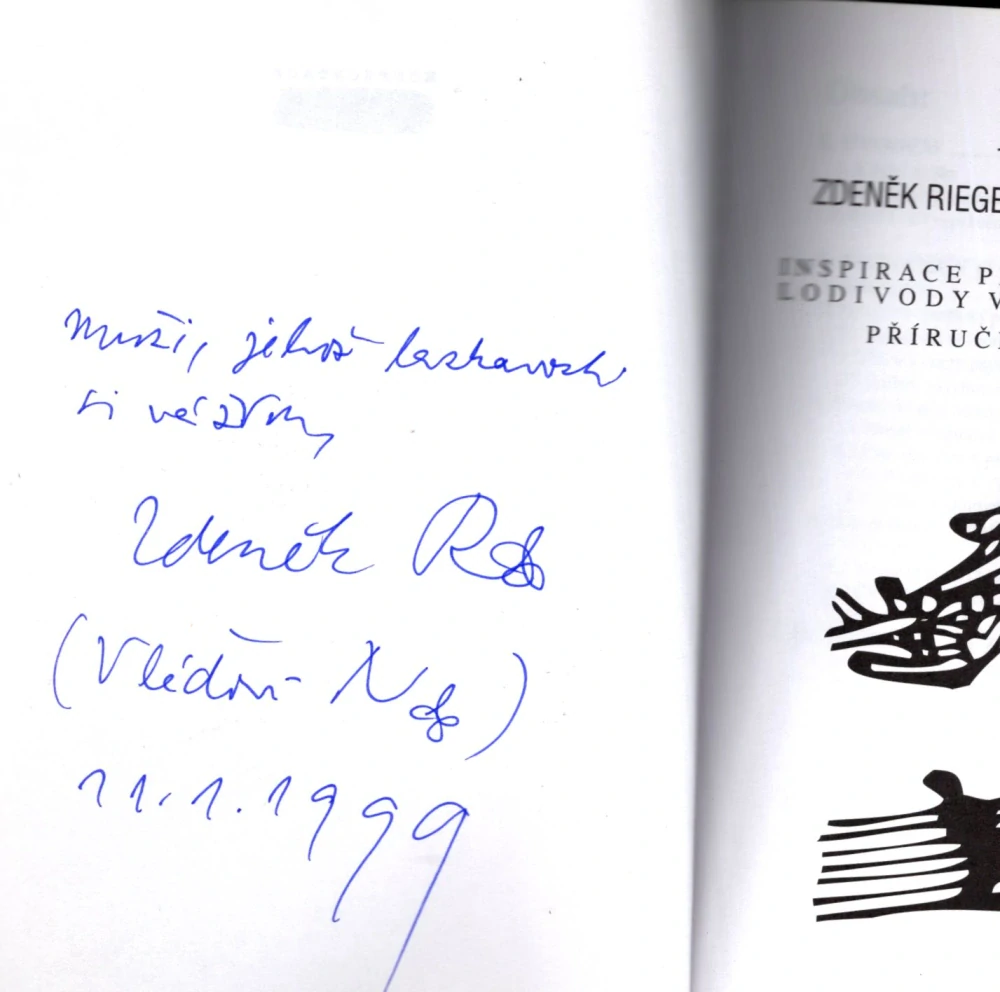 muži, jehož laskavosti
si vážím,
Zdeněk R
(Vláďovi N )
11.1.1999
ZDENĚK RIEGE
INSPIRACE P
LODIVODY V
PŘÍRUČ